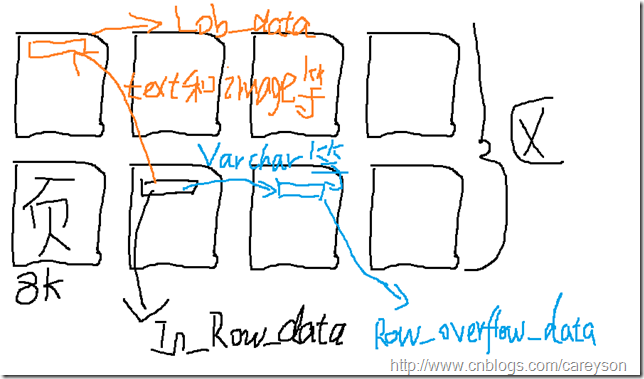 Lob_data
text和image等
Varchar等
区
页
8k
In_Row_data
Row_overflow_data
http://www.cnblogs.com/careyson